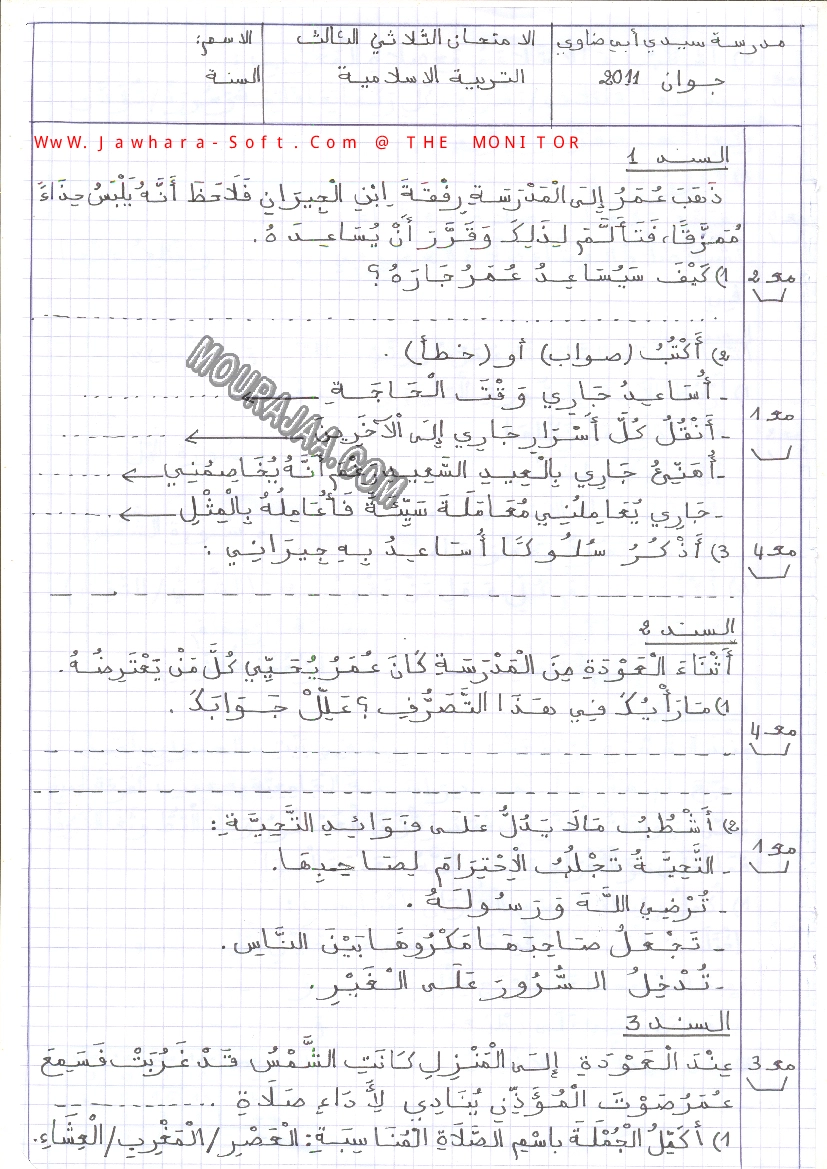 مدرسة سيدي أبي ضاوي
جوان 2011
الامتحان الثلاثي الثالث
التربية الاسلامية
الاسم:
السنة
WwW.Jawhara-Soft.Com @ THE MONITOR
السند 1
ذَهَبَ عُمَرُ إِلَى الْمَدْرَسَةِ رِفْقَةَ اِبْنِ الْجِيرَانِ فَلَاحَظَ أَنَّهُ يَلْبَسُ حِذَاءً
مُمَزَّقًا، فَتَأَلَّمَ لِذَلِكَ وَقَرَّرَ أَنْ يُسَاعِدَهُ.
1) كَيْفَ سَيُسَاعِدُ عُمَرُ جَارَهُ؟
مع 2
2) أَكْتُبُ (صواب) أو (خطأ).
- أُسَاعِدُ جَارِي وَقْتَ الْحَاجَةِ
مع 1
- أَنْقُلُ كُلَّ أَسْرَارِ جَارِي إِلَى الْآخَرِينَ
- أُهَنِّئُ جَارِي بِالْعِيدِ السَّعِيدِ رَغْمَ أَنَّهُ يُخَاصِمُنِي
- جَارِي يُعَامِلُنِي مُعَامَلَةً سَيِّئَةً فَأُعَامِلُهُ بِالْمِثْلِ
3) أَذْكُرُ سُلُوكًا أُسَاعِدُ بِهِ جِيرَانِي:
مع 4
السند 2
أَثْنَاءَ الْعَوْدَةِ مِنَ الْمَدْرَسَةِ كَانَ عُمَرُ يُحَيِّي كُلَّ مَنْ يَعْتَرِضُهُ.
1) مَا رَأْيُكَ فِي هَذَا التَّصَرُّفِ؟ عَلِّلْ جَوَابَكَ.
مع 4
2) أَشْطُبُ مَا لَا يَدُلُّ عَلَى فَوَائِدِ التَّحِيَّةِ:
مع 1
- التَّحِيَّةُ تَجْلُبُ الْاِحْتِرَامَ لِصَاحِبِهَا.
- تُرْضِي اللَّهَ وَرَسُولَهُ.
- تَجْعَلُ صَاحِبَهَا مَكْرُوهًا بَيْنَ النَّاسِ.
- تُدْخِلُ السُّرُورَ عَلَى الْغَيْرِ.
السند 3
عِنْدَ الْعَوْدَةِ إِلَى الْمَنْزِلِ كَانَتِ الشَّمْسُ قَدْ غَرُبَتْ فَسَمِعَ
مع 3
عُمَرُ صَوْتَ الْمُؤَذِّنِ يُنَادِي لِأَدَاءِ صَلَاةِ
1) أُكَمِّلُ الْجُمْلَةَ بِاسْمِ الصَّلَاةِ الْمُنَاسِبَةِ: الْعَصْرِ/الْمَغْرِبِ/الْعِشَاءِ.
MOURAJAA.COM